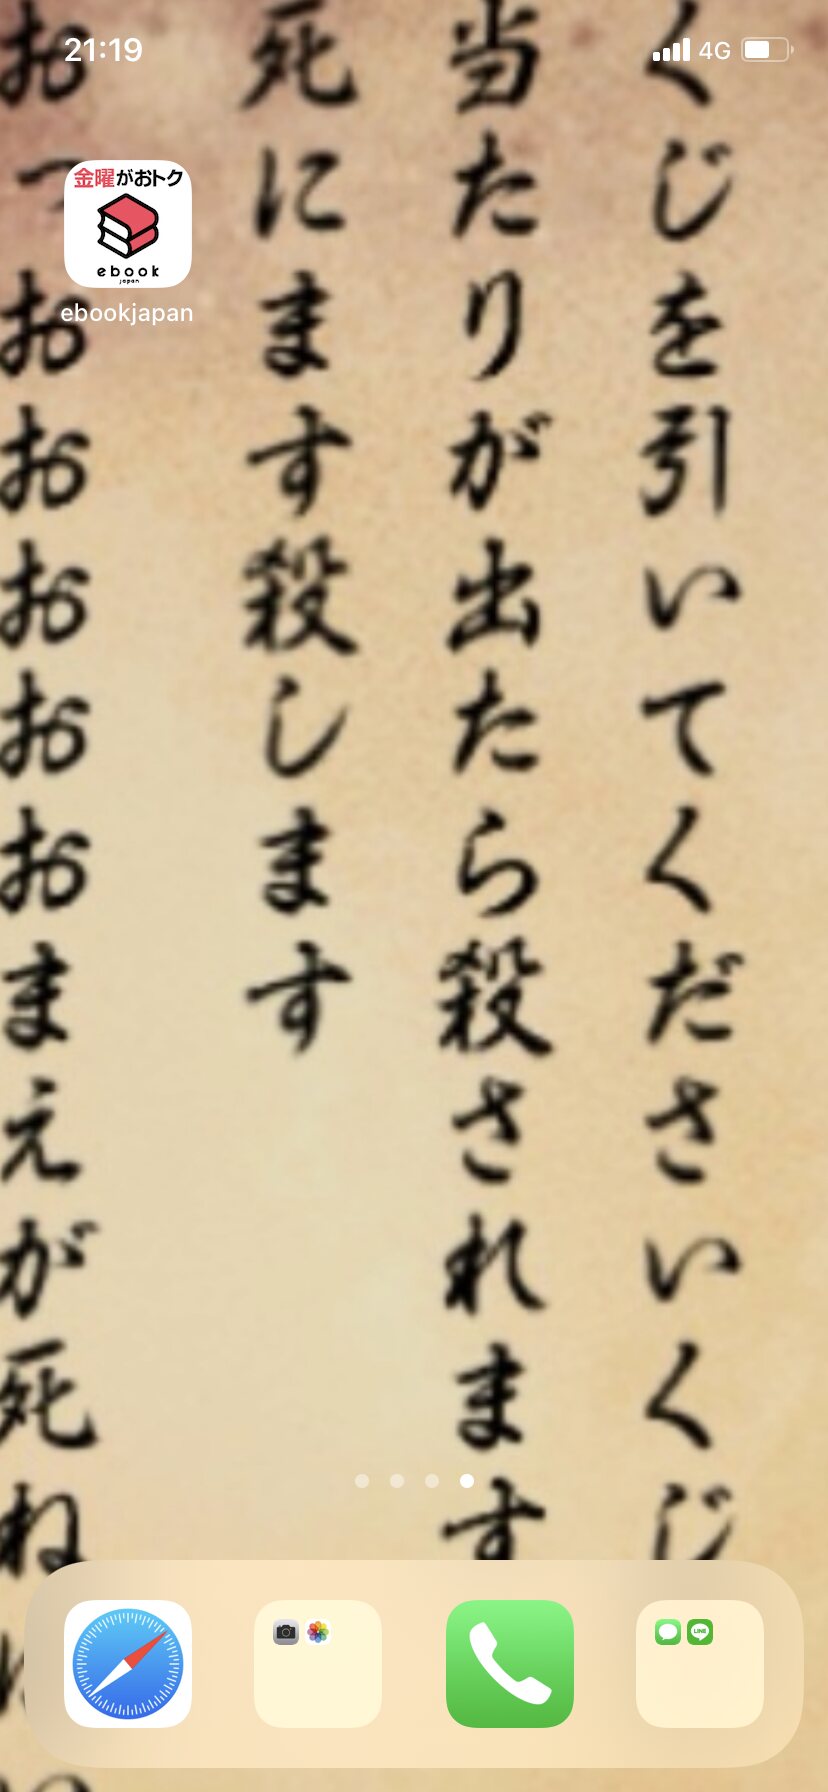 21:19
4G
くじを引いてくださいくじ
当たりが出たら殺されます
死にます殺します
おっおおおおおまえが死ね
金曜がおトク
ebook
japan
ebookjapan
LINE